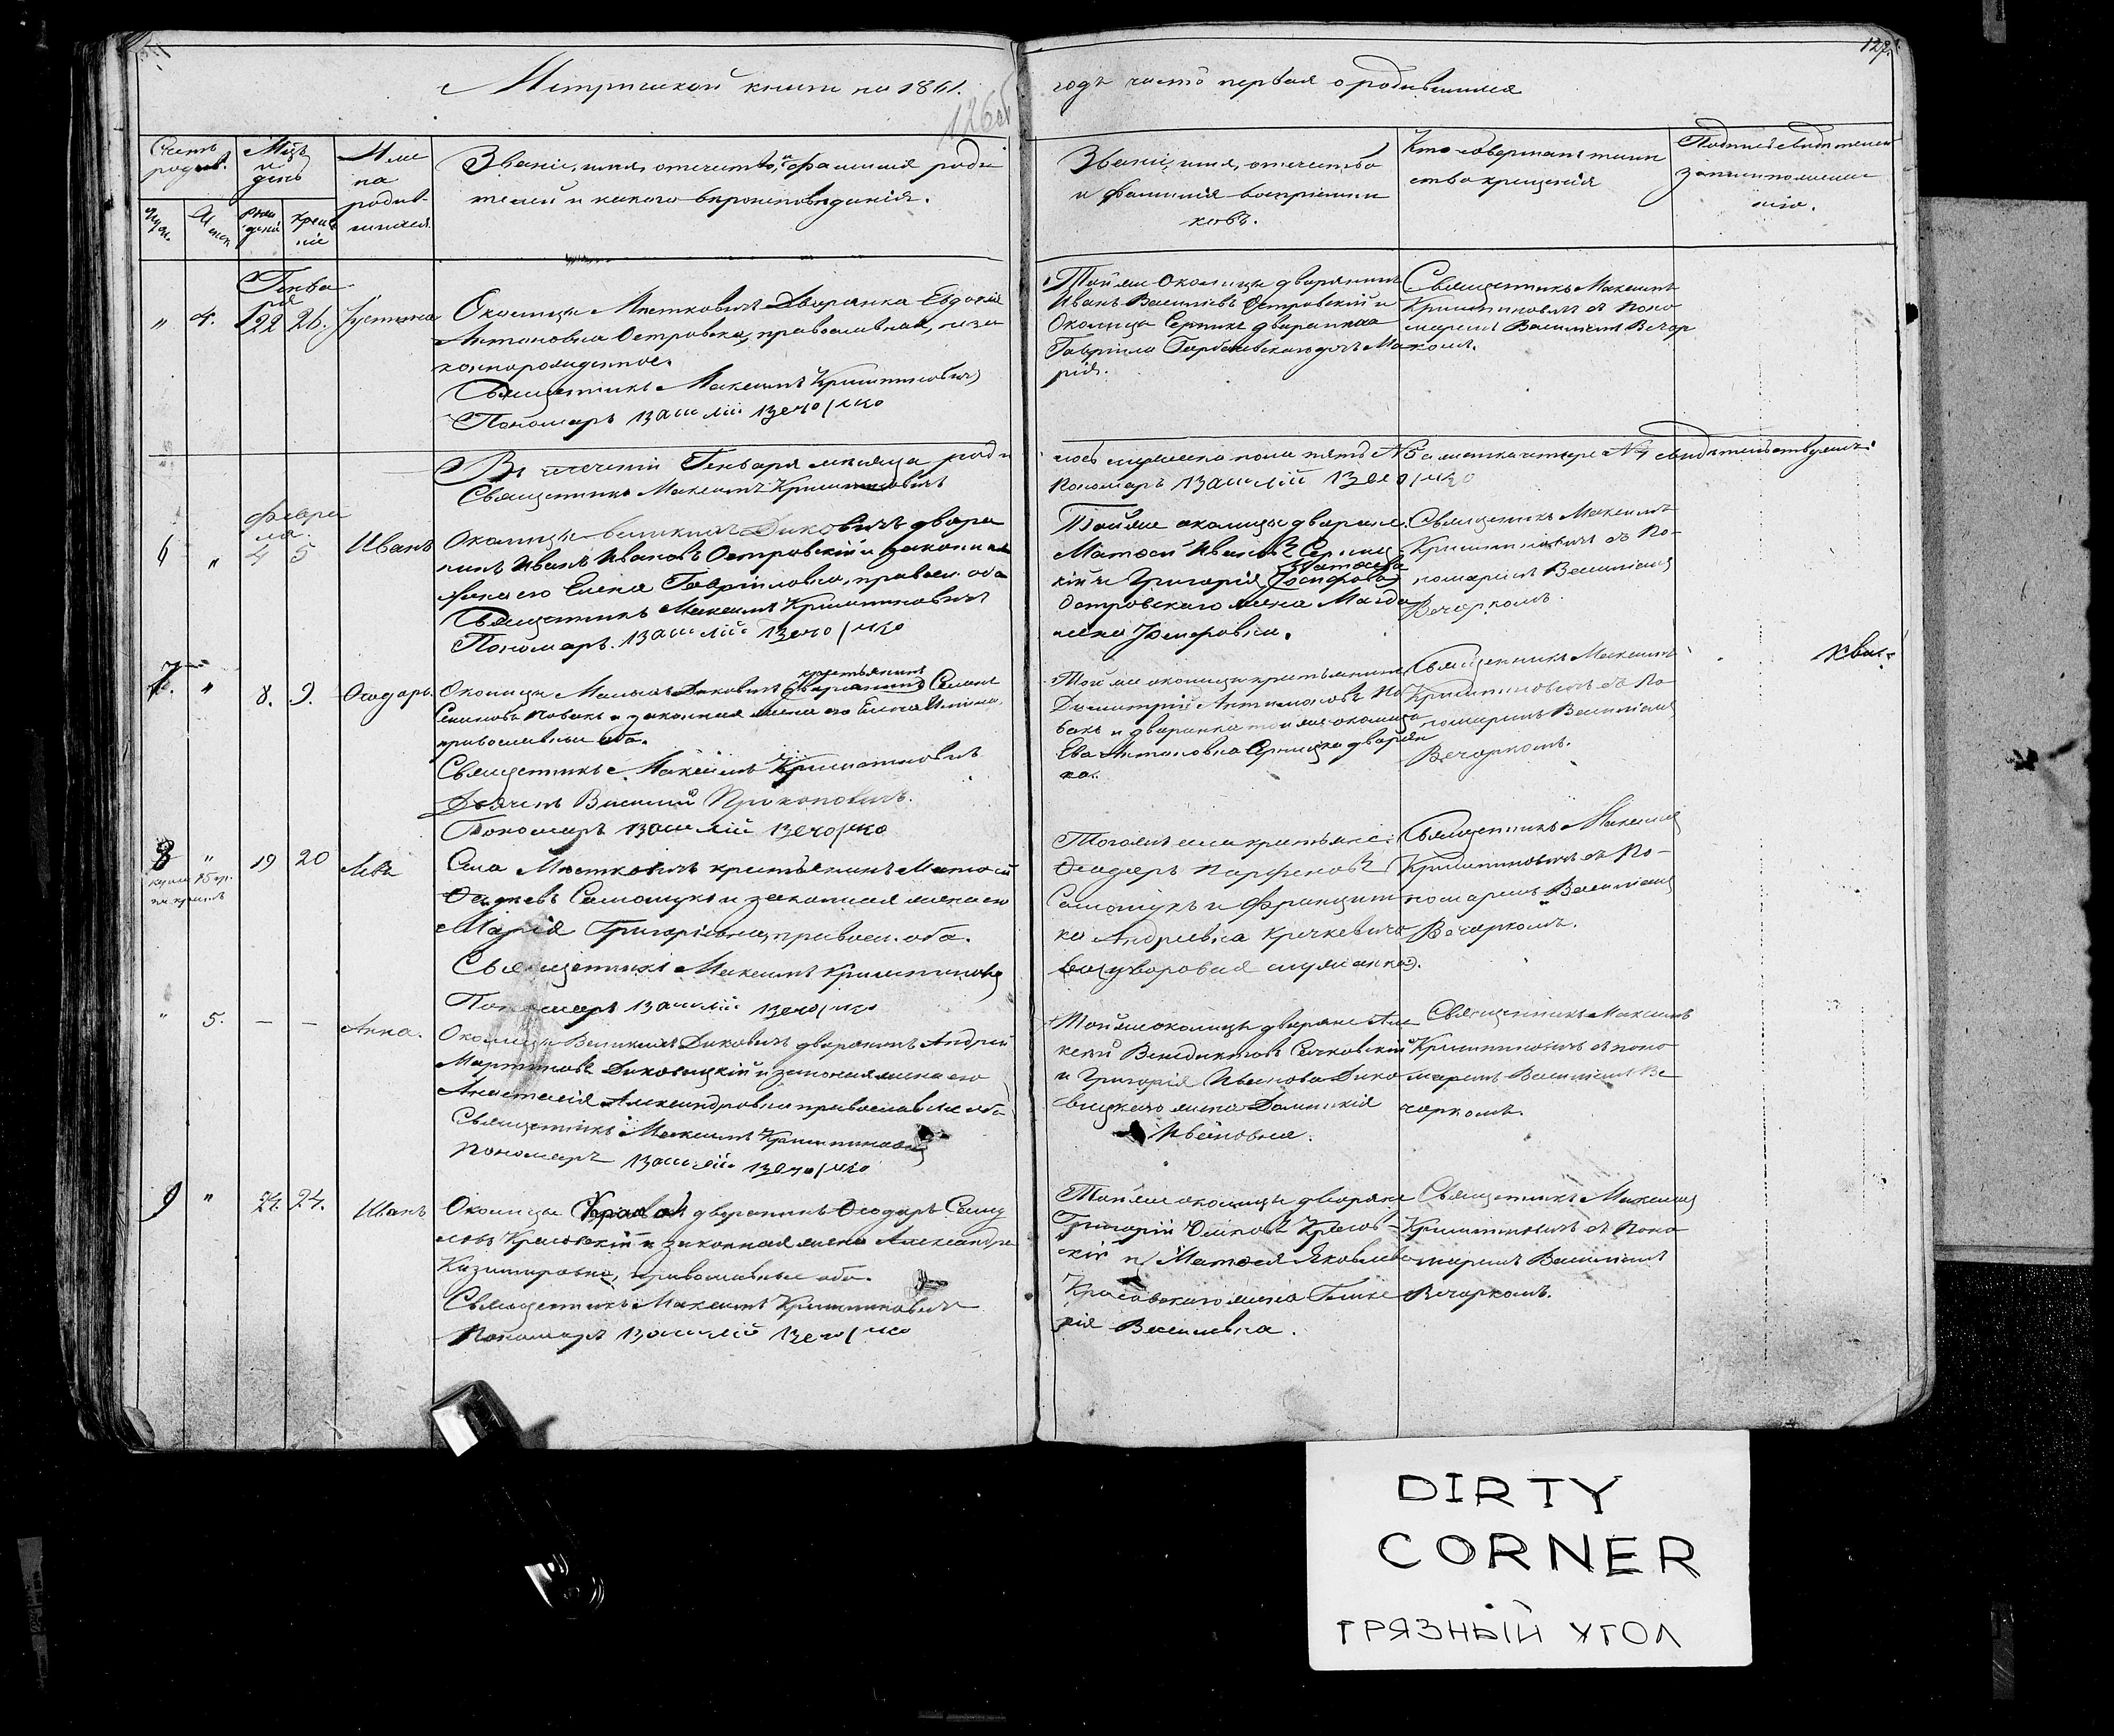 Метрической книги на 1861.
126об
годъ часть первая о родившихся
127.
Счетъ родив.
Мѣцъ и день
Имена родив-шихся
Званіе, имя, отчество, и фамилія роди
телей и какого вѣроисповѣданія.
Званіе, имя, отчество
и фамилія воспріемни
ковъ.
Кто совершалъ таин
ство крещенія
Муж.
Жен
рож дені
креще ніе
Генва
ря
" 4. 22 26. Іустина
Околицы Мнетковичъ Дворянка Евдокія
Антоновна Островска, православная, неза
коннорожденное.
Священникъ Максимъ Криштиновичъ
Пономаръ Василій Вечорко
Той же Околицы дворянинъ
Иванъ Васильевъ Островскій и
Околица Серникъ дворянина
Гаврила Горбачевскаго дочь Ма
рія.
Священникъ Максимъ
Криштиновичъ съ поно
маремъ Василіемъ Вечор
комъ.
Въ теченіи Генваря мѣсяца роди
Священникъ Максимъ Криштиновичъ
лось мужеска пола пять №5 а женска четыре №4 свидѣтельствуемъ:
Пономаръ Василій Вечорко
Февра
ля.
6 " 4 5 Иванъ
Околицы Великихъ Диковичъ дворя
нинъ Иванъ Ивановъ Островскій и законная
жена его Елена Гавріиловна, правосл. оба
Священникъ Максимъ Криштиновичъ
Пономаръ. Василій Вечорко
Той же околицы дворяне
Матѳей Ивановъ Серниц
кій и Григорія Іосифова
Матѳева
Островскаго жена Магда
лена Іосифовна.
Священникъ Максимъ
Криштиновичъ съ По-
номаремъ Василіемъ
Вечоркомъ.
7. " 8. 9. Ѳеодоръ.
крестьянинъ
Околицы Малыхъ Диковичъ дворянинъ Семенъ
православные оба.
Священникъ Максимъ Криштиновичъ
Дьячекъ Василій Прокоповичъ.
Пономаръ Василій Вечорко
Той же околицы крестьянинъ
Димитрій Антоновъ Но
вакъ и дворянка той же околицы
Ева Антоновна Серницка дворян
ка.
Священникъ Максимъ
Криштиновичъ съ По
номаремъ Василіемъ
Вечоркомъ.
8 " 19 20 Левъ
Села Мнетковичъ крестьянинъ Матѳей
Самощукъ и законная жена его
Марія Григоріевна, правосл. оба.
Священникъ Максимъ Криштиновичъ
Пономаръ Василій Вечорко
Тогожъ села крестьяне:
Ѳеодоръ Парфеновъ
Самощукъ и Францишка
Андреевна
Священникъ Максимъ
Криштиновичъ съ По-
номаремъ Василіемъ
Вечоркомъ.
" 5. — — Анна.
Околицы Великихъ Диковичъ дворянинъ Андрей
Мартиновъ Диковицкій и законная жена его
Анастасія Александровна православные оба
Священникъ Максимъ Криштиновичъ
Пономаръ Василій Вечорко
Той же околицы дворяне Але
ксѣй Венедиктовъ Сачковскій
и Григорія Иванова Дико
вицкаго жена Доминикія
Ивановна.
Священникъ Максимъ
Криштиновичъ съ поно
маремъ Василіемъ Ве
чоркомъ.
9 " 24. 24. Иванъ
Околицы дворянинъ Ѳеодоръ Саму
ловъ Красовскій и законная жена Александра
Казимировна, православные оба.
Священникъ Максимъ Криштиновичъ
Пономаръ Василій Вечорко
Той же околицы дворяне
Григорій Ѳоминовъ Красов-
скій и Матѳея Яковлева
Красовскаго жена Глике
рія Васильевна.
Священникъ Максимъ
Криштиновичъ съ Поно
маремъ Василіемъ
Вечоркомъ.
DIRTY
CORNER
ГРЯЗНЫЙ УГОЛ